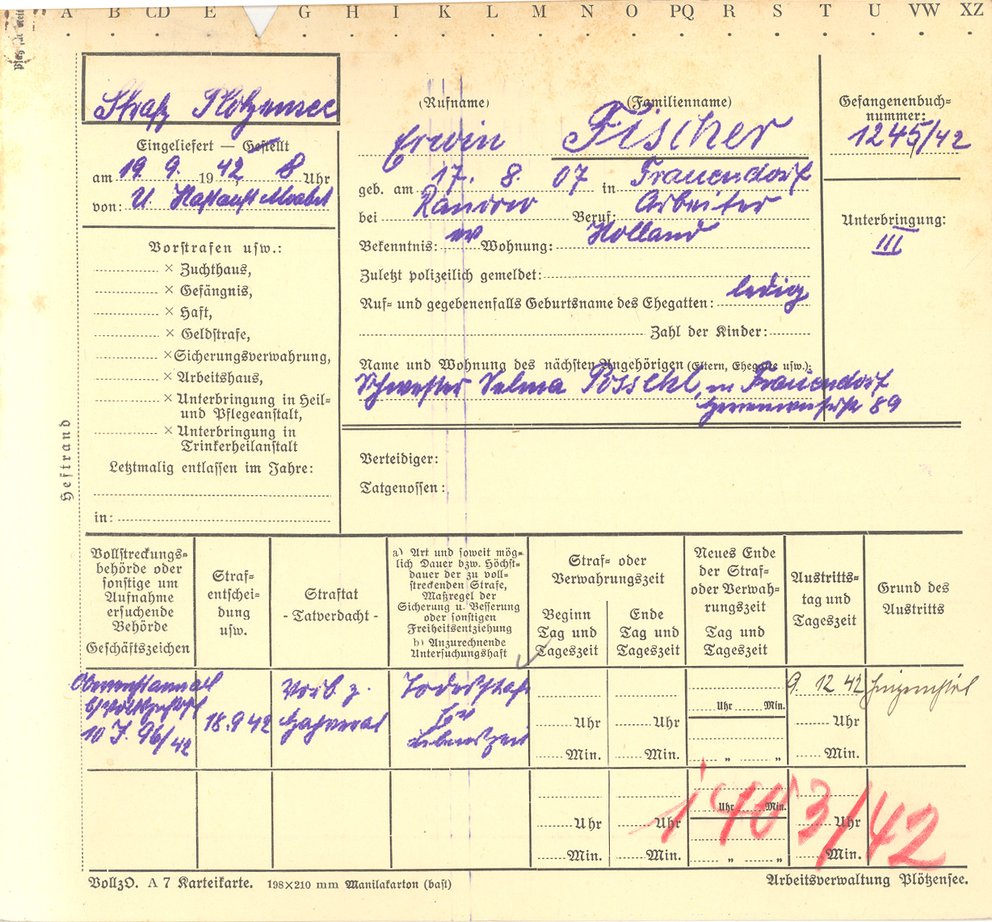 A B CD E G H I K L M N O PQ R S T U VW XZ
Strafg Plötzensee
Eingeliefert — Gestellt
am 19. 9. 1942, 8 Uhr
von: U. Haftanst Moabit
(Rufname) (Familienname)
Erwin Fischer
geb. am 17. 8. 07 in Frauendorf
bei Randow Beruf: Arbeiter
Bekenntnis: Wohnung: Holland
Zuletzt polizeilich gemeldet:
Ruf- und gegebenenfalls Geburtsname des Ehegatten: ledig
Zahl der Kinder:
Name und Wohnung des nächsten Angehörigen (Eltern, Ehegatte usw.):
Schwester Selma Pösschl, in Frauendorf
89
Gefangenenbuch-
nummer:
1245/42
Unterbringung:
III
Vorstrafen usw.:
× Zuchthaus,
× Gefängnis,
× Haft,
× Geldstrafe,
× Sicherungsverwahrung,
× Arbeitshaus,
× Unterbringung in Heil-
und Pflegeanstalt,
× Unterbringung in
Trinkerheilanstalt
Letztmalig entlassen im Jahre:
in:
Heftrand
Verteidiger:
Tatgenossen:
Vollstreckungs-
behörde oder
sonstige um
Aufnahme
ersuchende
Behörde
Geschäftszeichen
Straf-
entschei-
dung
usw.
Straftat
- Tatverdacht -
a) Art und soweit mög-
lich Dauer bzw. Höchst-
dauer der zu voll-
streckenden Strafe,
Maßregel der
Sicherung u. Besserung
oder sonstigen
Freiheitsentziehung
b) Anzurechnende
Untersuchungshaft
Straf- oder
Verwahrungszeit
Beginn
Tag und
Tageszeit
Ende
Tag und
Tageszeit
Neues Ende
der Straf-
oder Verwah-
rungszeit
Tag und
Tageszeit
Austritts-
tag und
Tageszeit
Grund des
Austritts
Oberreichsanwalt
b/Volksgerichtshof
10 J. 96/42
18.9.42
Vorb. z.
Hochverrat
Todesstrafe
Ehrv
Lebenszeit
9. 12 42 hingerichtet
Uhr Min.
Uhr Uhr Uhr
Min. Min. „ „ Min.
1403/42
Uhr Min.
Uhr Uhr Uhr
Min. Min. „ „ Min.
VollzO. A 7 Karteikarte. 198×210 mm Manilakarton (bast)
Arbeitsverwaltung Plötzensee.